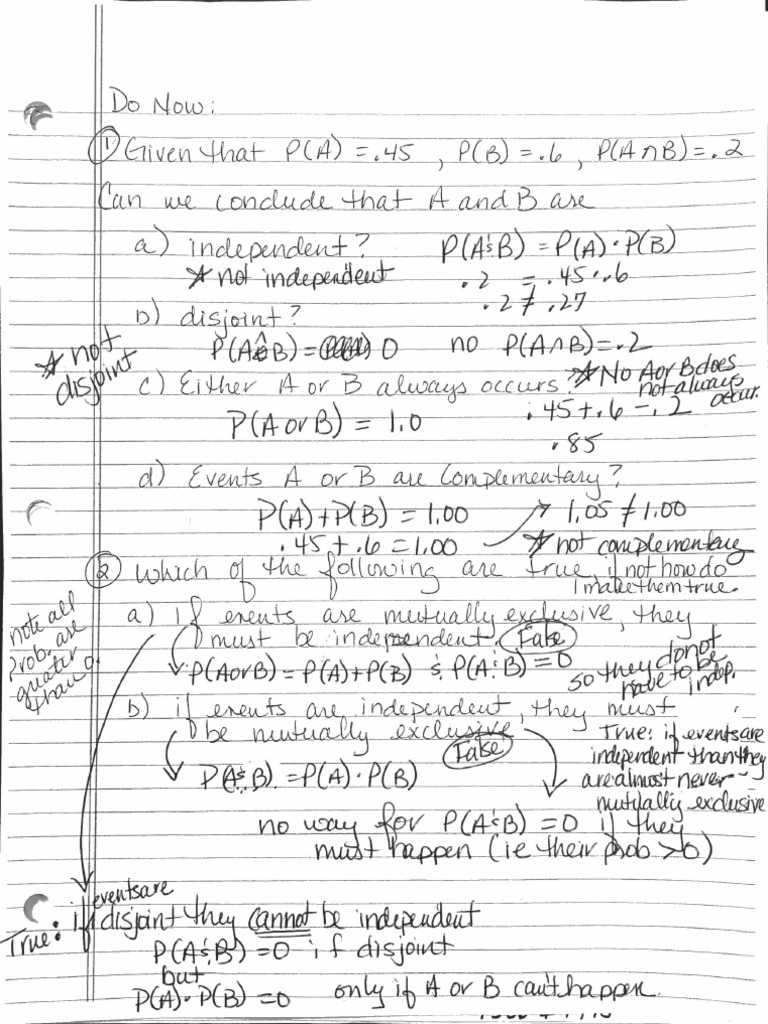 Do Now:
① Given that P(A) = .45 , P(B) = .6 , P(A∩B) = .2
Can we conclude that A and B are
a) independent? P(A & B) = P(A) · P(B)
* not independent .2 = .45 · .6
.2 ≠ .27
b) disjoint?
* not disjoint
P(A & B) = 0 no P(A∩B) = .2
c) Either A or B always occurs? * No A or B does not always occur.
P(A or B) = 1.0 .45 + .6 - .2
.85
d) Events A or B are Complementary?
P(A) + P(B) = 1.00 → 1.05 ≠ 1.00
.45 + .6 = 1.00 * not complementary
② Which of the following are true, if not how do I make them true.
note all Prob. are greater than 0
a) if events are mutually exclusive, they
must be independent. False
P(A or B) = P(A) + P(B) & P(A & B) = 0
so they do not have to be indep.
b) if events are independent, they must
be mutually exclusive False
P(A & B) = P(A) · P(B)
True: if events are
independent than they
are almost never
mutually exclusive
no way for P(A & B) = 0 if they
must happen (ie their prob > 0)
True: if events are disjoint they cannot be independent
P(A & B) = 0 if disjoint
but
P(A) · P(B) = 0 only if A or B can't happen.